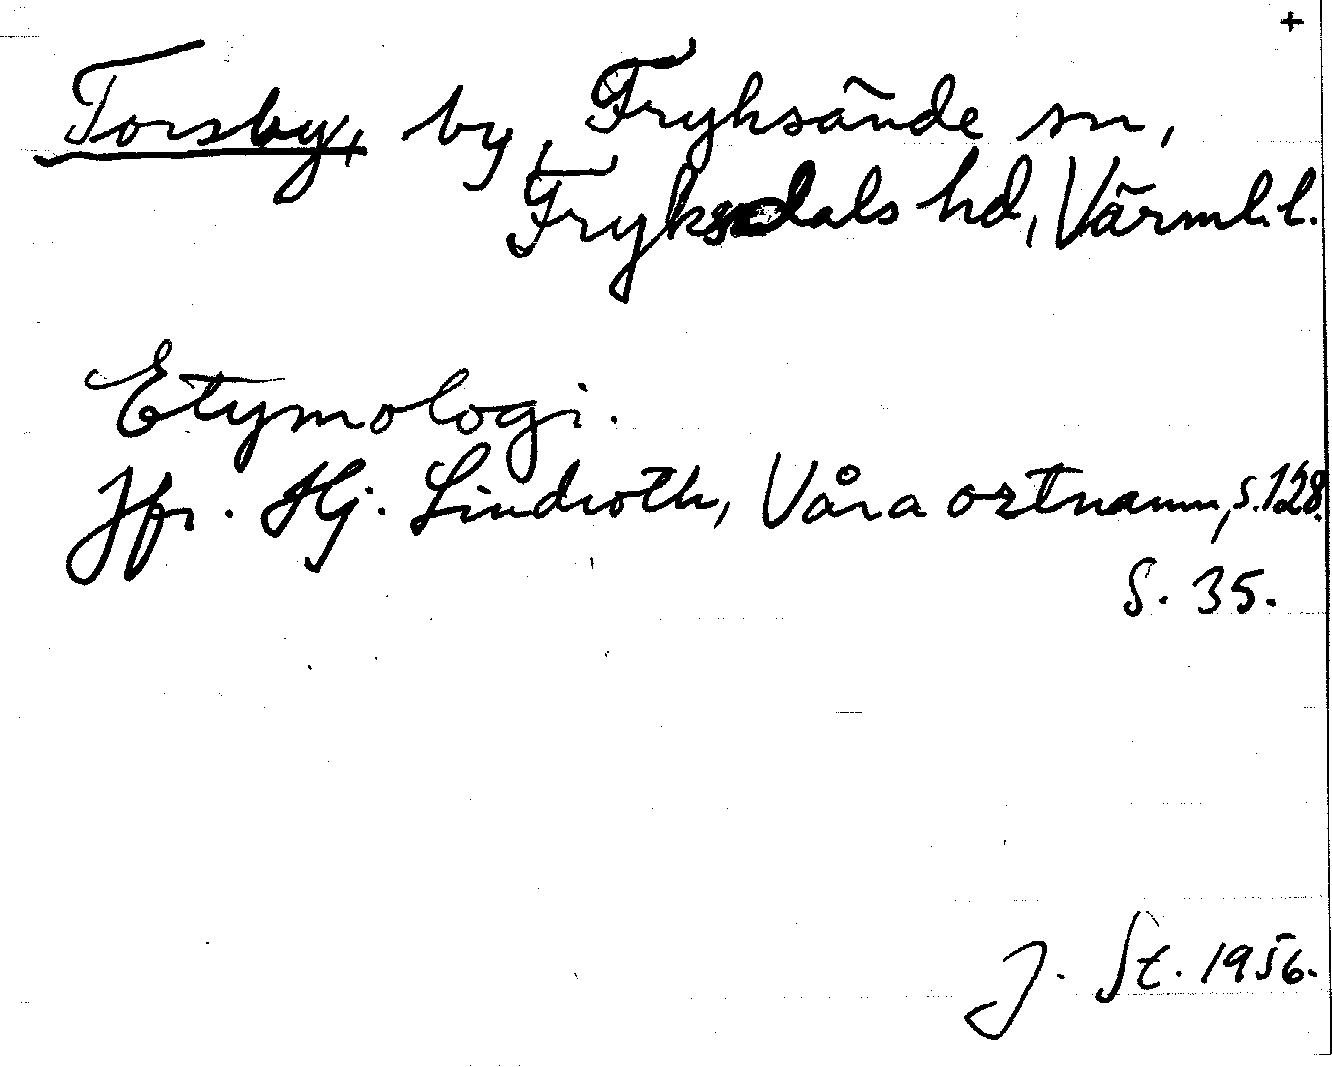 +
Torsby, by, Fryksände sn,
Fryksdals hd, Värml. l.
Etymologi.
Jfr. Hj. Lindroth, Våra ortnamn, s. 128.
S. 35.
J. St. 1956.